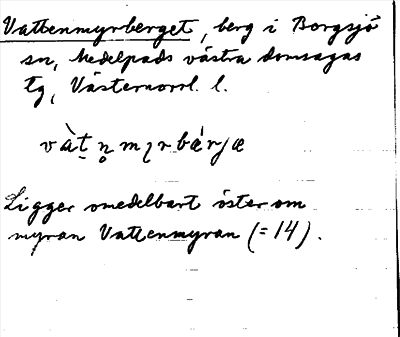 Vattenmyrberget, berg i Borgsjö
sn, Medelpads västra domsagas
tg, Västernorrl. l.
vàt̠n̥mɿrbǽrjæ
Ligger omedelbart öster om
myran Vattenmyran (=14).